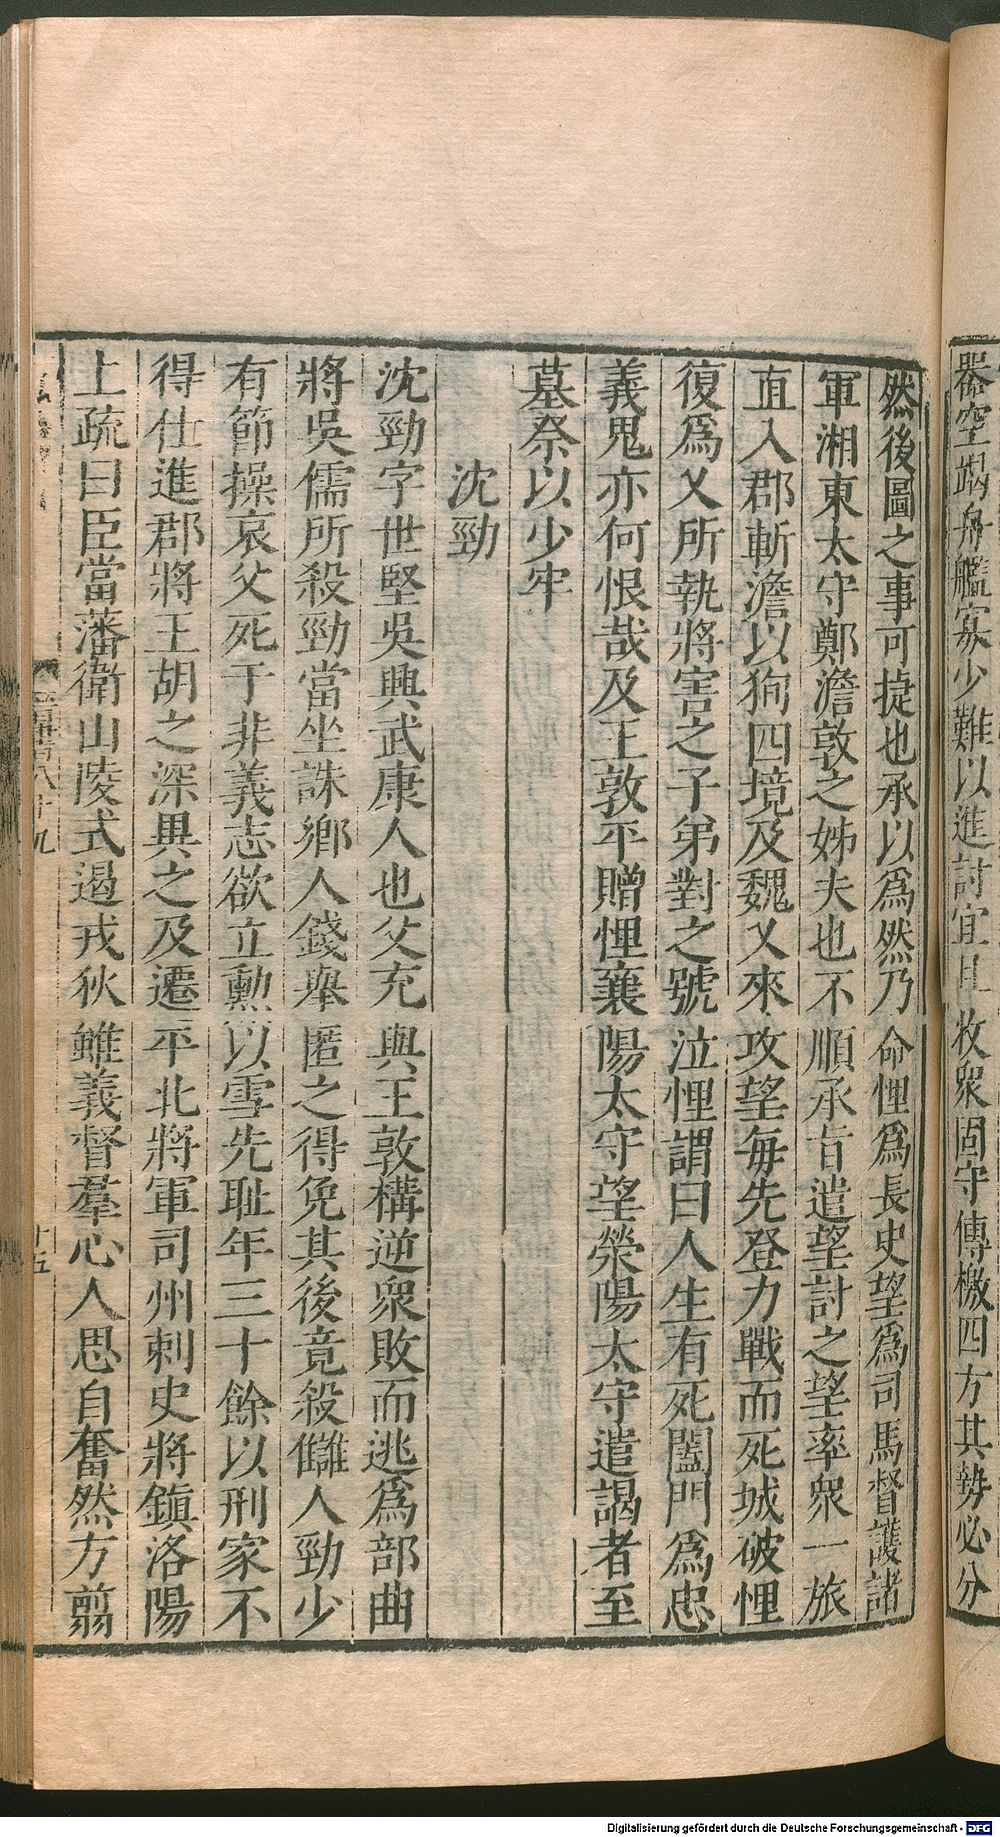 器空竭舟艦寡少難以進討宜且收眾固守傳檄四方其勢必分
然後圖之事可捷也承以為然乃命悝為長史望為司馬督護諸
軍湘東太守鄭澹敦之姊夫也不順承旨遣望討之望率眾一旅
直入郡斬澹以狥四境及魏乂來攻望每先登力戰而死城破悝
復為乂所執將害之子弟對之號泣悝謂曰人生有死闔門為忠
義鬼亦何恨哉及王敦平贈悝襄陽太守望滎陽太守遣謁者至
墓祭以少牢
沈勁
沈勁字世堅吳興武康人也父充與王敦構逆眾敗而逃為部曲
將吳儒所殺勁當坐誅鄉人錢舉匿之得免其後竟殺讎人勁少
有節操哀父死于非義志欲立勳以雪先恥年三十餘以刑家不
得仕進郡將王胡之深異之及遷平北將軍司州刺史將鎮洛陽
上疏曰臣當藩衛山陵式遏戎狄雖義督羣心人思自奮然方翦
十五
Digitalisierung gefördert durch die Deutsche Forschungsgemeinschaft - DFG